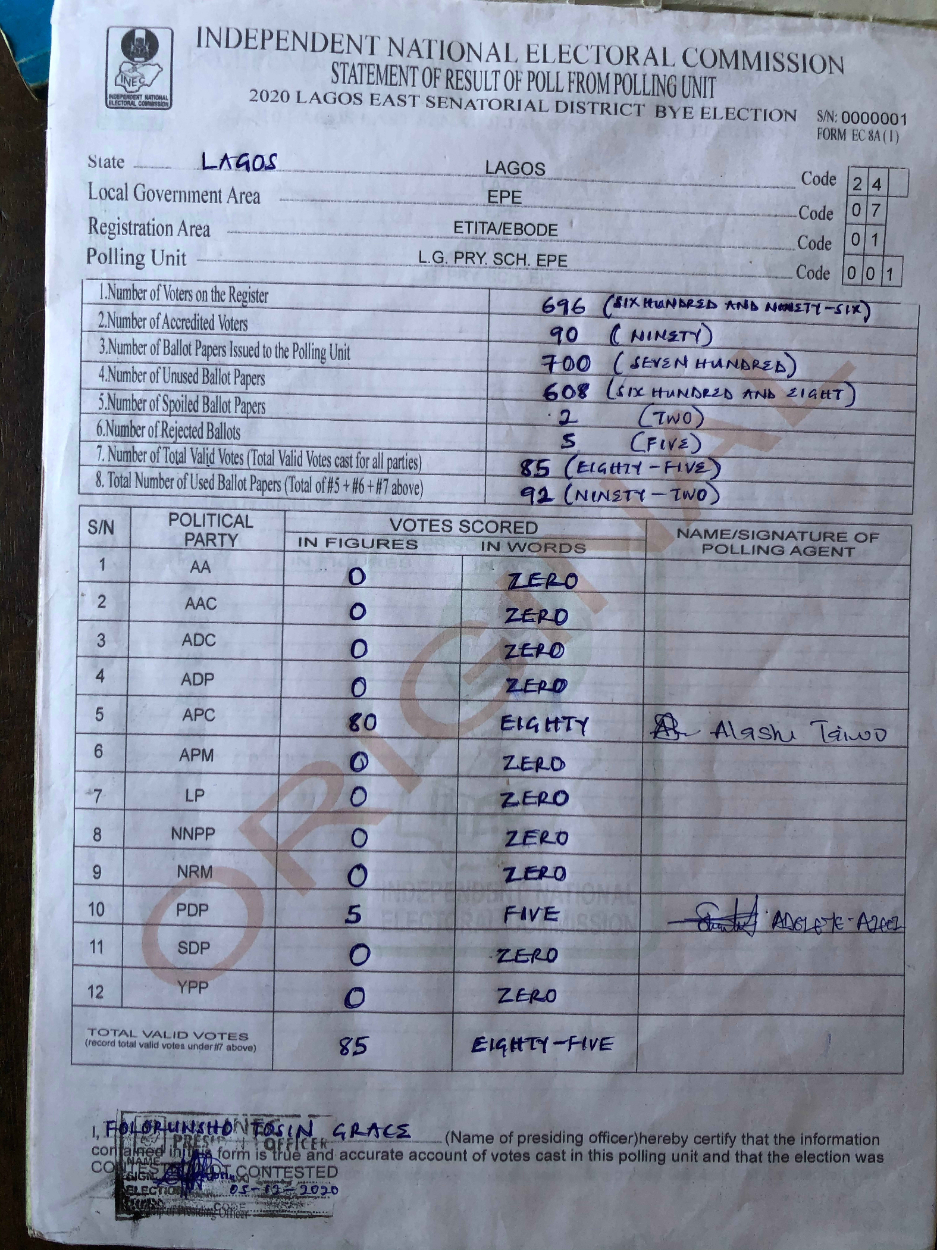 INEC
INDEPENDENT NATIONAL
ELECTORAL COMMISSION
INDEPENDENT NATIONAL ELECTORAL COMMISSION
STATEMENT OF RESULT OF POLL FROM POLLING UNIT
2020 LAGOS EAST SENATORIAL DISTRICT BYE ELECTION
S/N: 0000001
FORM EC 8A (I)
State LAGOS LAGOS Code 2 4
Local Government Area EPE Code 0 7
Registration Area ETITA/EBODE Code 0 1
Polling Unit L.G. PRY. SCH. EPE Code 0 0 1
1.Number of Voters on the Register 696 (SIX HUNDRED AND NINETY-SIX)
2.Number of Accredited Voters 90 (NINETY)
3.Number of Ballot Papers Issued to the Polling Unit 700 (SEVEN HUNDRED)
4.Number of Unused Ballot Papers 608 (SIX HUNDRED AND EIGHT)
5.Number of Spoiled Ballot Papers 2 (TWO)
6.Number of Rejected Ballots 5 (FIVE)
7. Number of Total Valid Votes (Total Valid Votes cast for all parties) 85 (EIGHTY-FIVE)
8. Total Number of Used Ballot Papers (Total of #5 + #6 + #7 above) 92 (NINETY-TWO)
S/N POLITICAL PARTY VOTES SCORED NAME/SIGNATURE OF POLLING AGENT
IN FIGURES IN WORDS
1 AA 0 ZERO
2 AAC 0 ZERO
3 ADC 0 ZERO
4 ADP 0 ZERO
5 APC 80 EIGHTY Alashe Taiwo
6 APM 0 ZERO
7 LP 0 ZERO
8 NNPP 0 ZERO
9 NRM 0 ZERO
10 PDP 5 FIVE
11 SDP 0 ZERO
12 YPP 0 ZERO
TOTAL VALID VOTES
(record total valid votes under#7 above) 85 EIGHTY-FIVE
ORIGINAL
INDEPENDENT NATIONAL
ELECTORAL COMMISSION
I, FOLORUNSHO TOSIN GRACE (Name of presiding officer)hereby certify that the information
contained in this form is true and accurate account of votes cast in this polling unit and that the election was
CONTESTED/NOT CONTESTED
05-12-2020